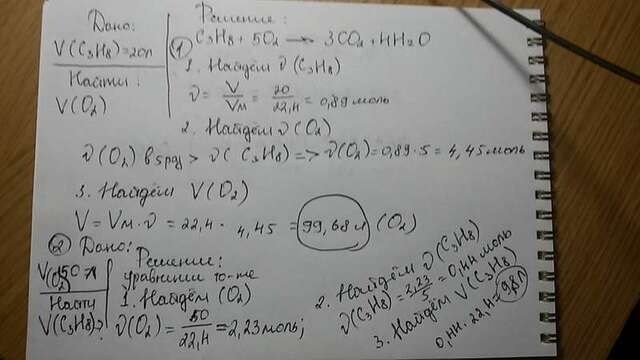 Дано:
V(C₃H₈)=20л
Найти:
V(O₂)
Решение:
① C₃H₈ + 5O₂ → 3CO₂ + 4H₂O
1. Найдём ν (C₃H₈)
ν = V/Vм = 20/22,4 = 0,89 моль
2. Найдём ν(O₂)
ν(O₂) в 5 раз > ν(C₃H₈) => ν(O₂)=0,89·5 = 4,45 моль
3. Найдём V(O₂)
V = Vм · ν = 22,4 · 4,45 = 99,68 л (O₂)
② Дано:
V(O₂) 50 л
Найти
V(C₃H₈)
Решение:
уравнение то-же
1. Найдём (O₂)
ν(O₂) = 50/22,4 = 2,23 моль;
2. Найдём ν(C₃H₈)
ν(C₃H₈) = 2,23/5 = 0,44 моль
3. Найдём V(C₃H₈)
0,44 · 22,4 = 9,8 л